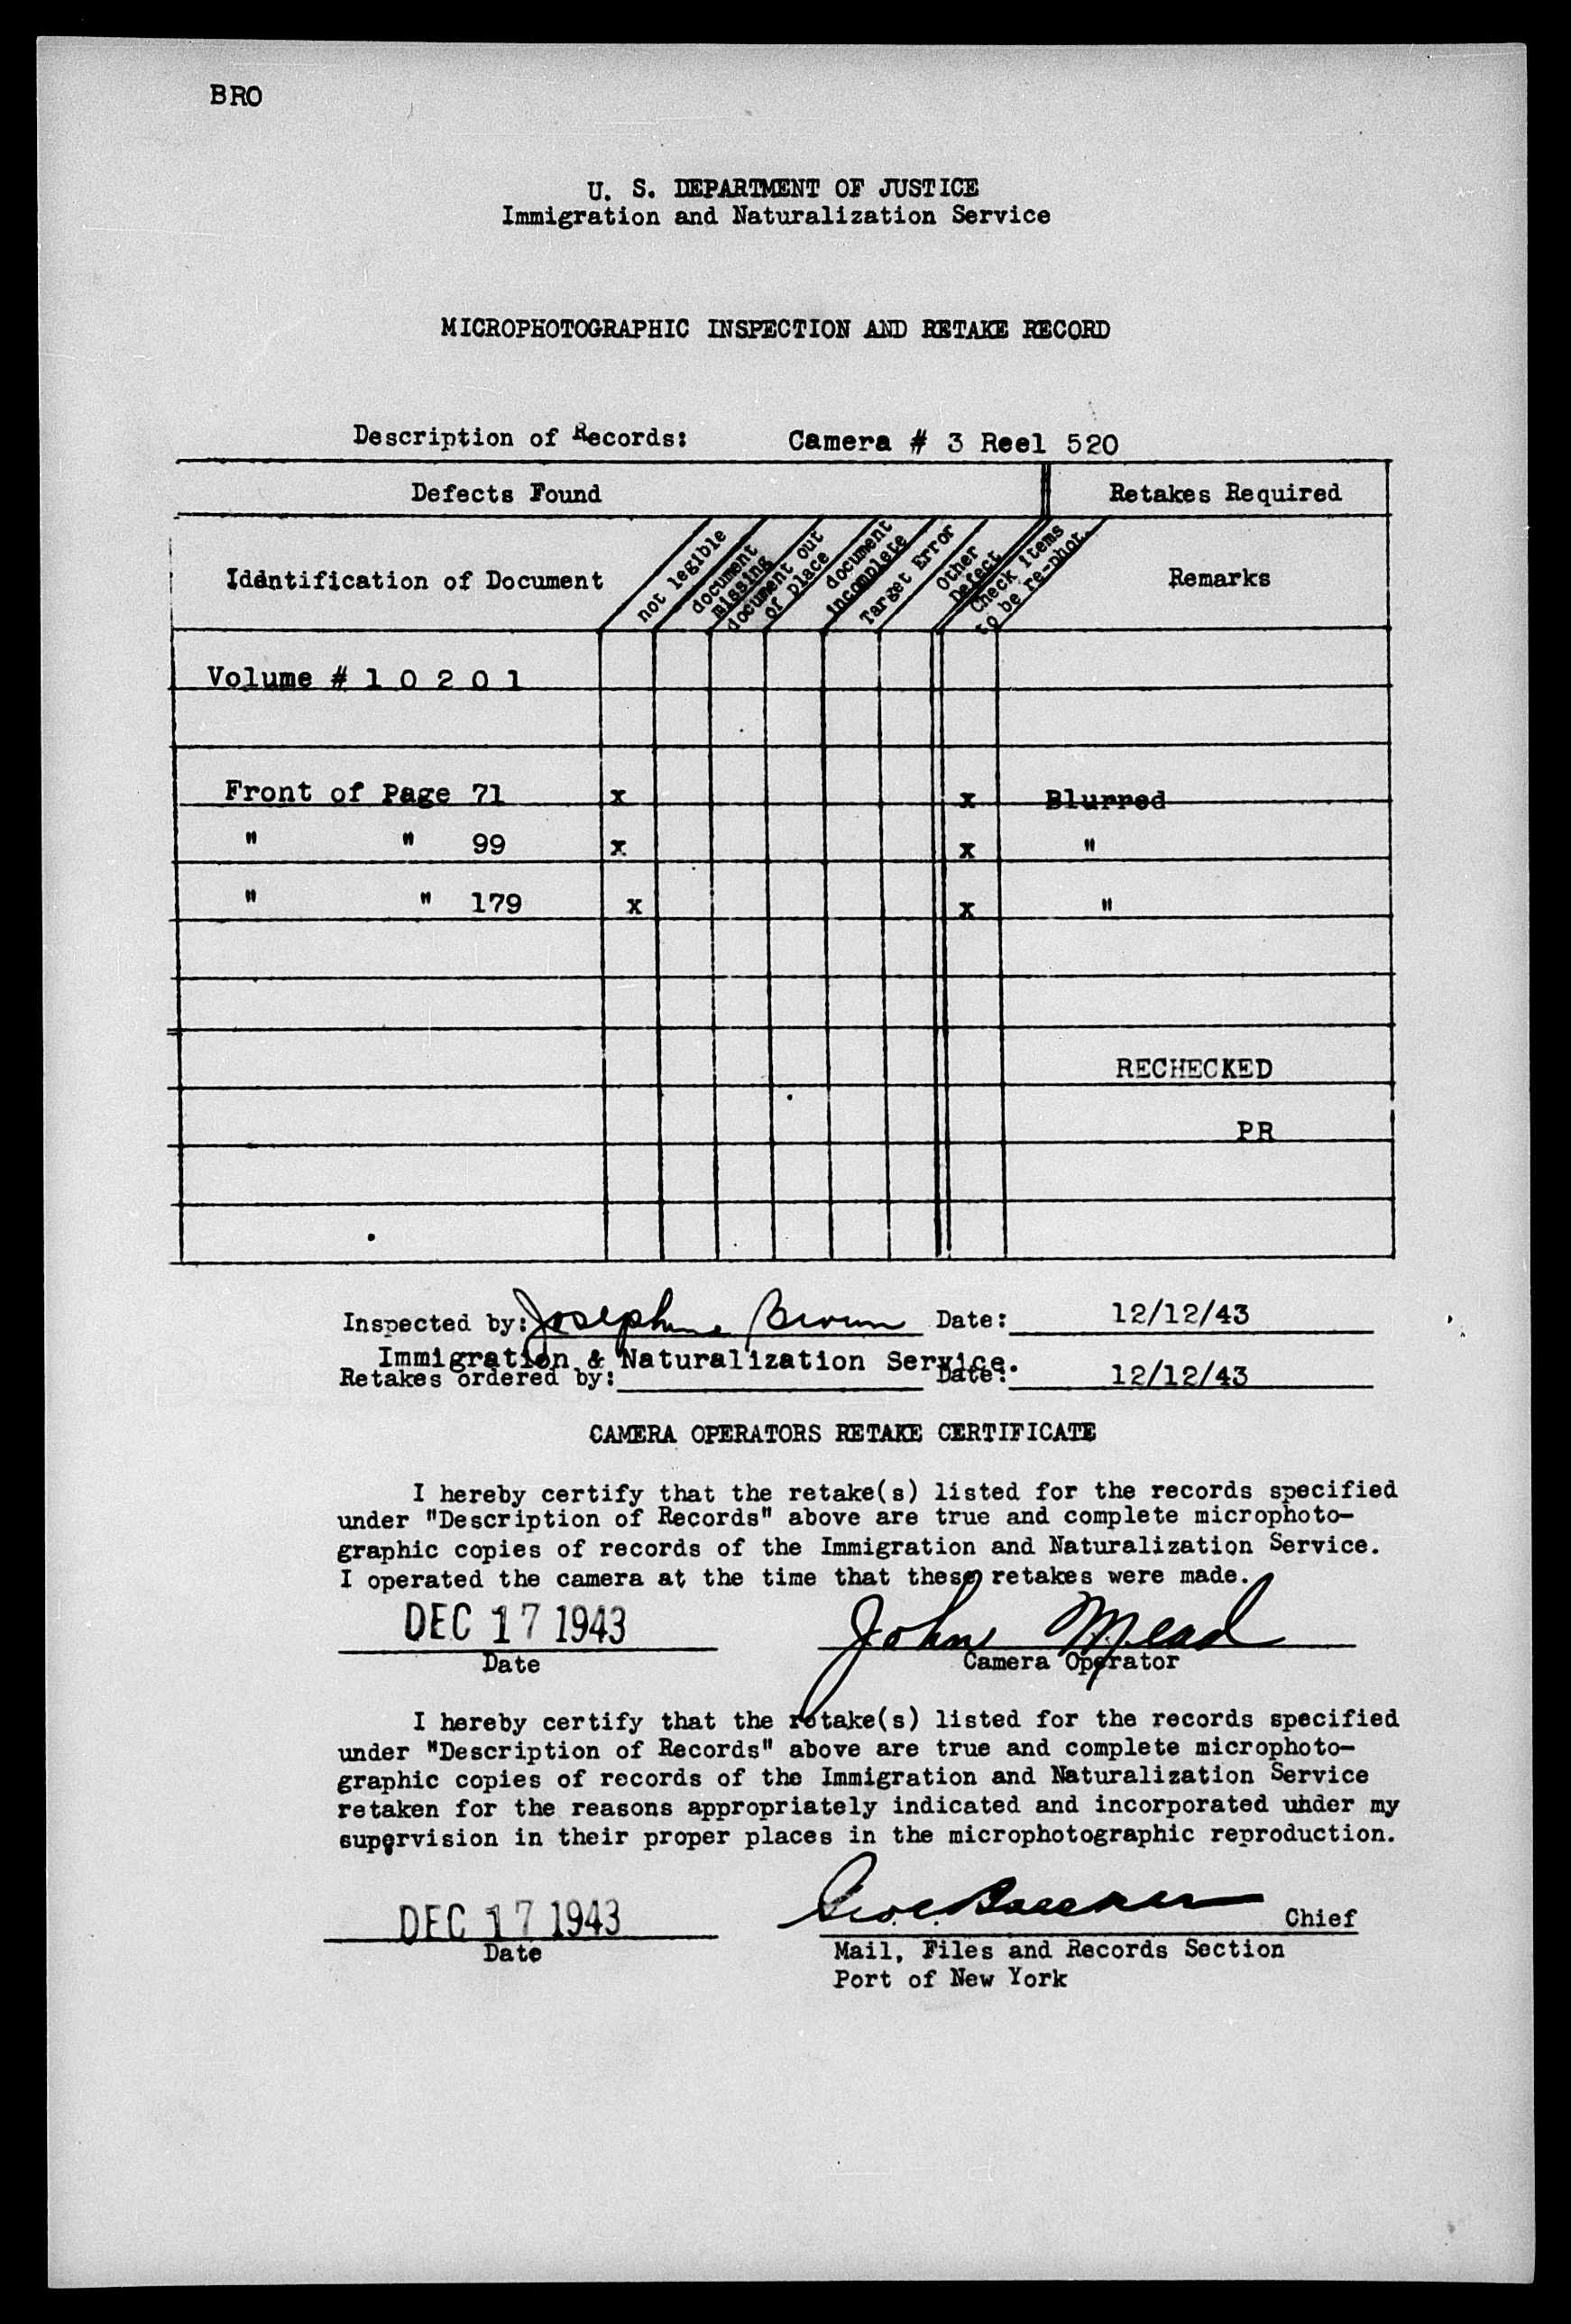 BRO
U. S. DEPARTMENT OF JUSTICE
Immigration and Naturalization Service
MICROPHOTOGRAPHIC INSPECTION AND RETAKE RECORD
Description of Records: Camera # 3 Reel 520
Defects Found Retakes Required
Iddntification of Document not legible document missing document out of place document incomplete Target Error Other Defect Check items to be re-phot. Remarks
Volume # 1 0 2 0 1
Front of Page 71 x x Blurred
" " 99 x x "
" " 179 x x "
RECHECKED
PR
Inspected by: Josephine Brown Date: 12/12/43
Immigration & Naturalization Service.
Retakes ordered by: Date: 12/12/43
CAMERA OPERATORS RETAKE CERTIFICATE
I hereby certify that the retake(s) listed for the records specified
under "Description of Records" above are true and complete microphoto-
graphic copies of records of the Immigration and Naturalization Service.
I operated the camera at the time that these retakes were made.
DEC 17 1943 John Mead
Date Camera Operator
I hereby certify that the retake(s) listed for the records specified
under "Description of Records" above are true and complete microphoto-
graphic copies of records of the Immigration and Naturalization Service
retaken for the reasons appropriately indicated and incorporated under my
supervision in their proper places in the microphotographic reproduction.
DEC 17 1943 Chief
Date Mail, Files and Records Section
Port of New York